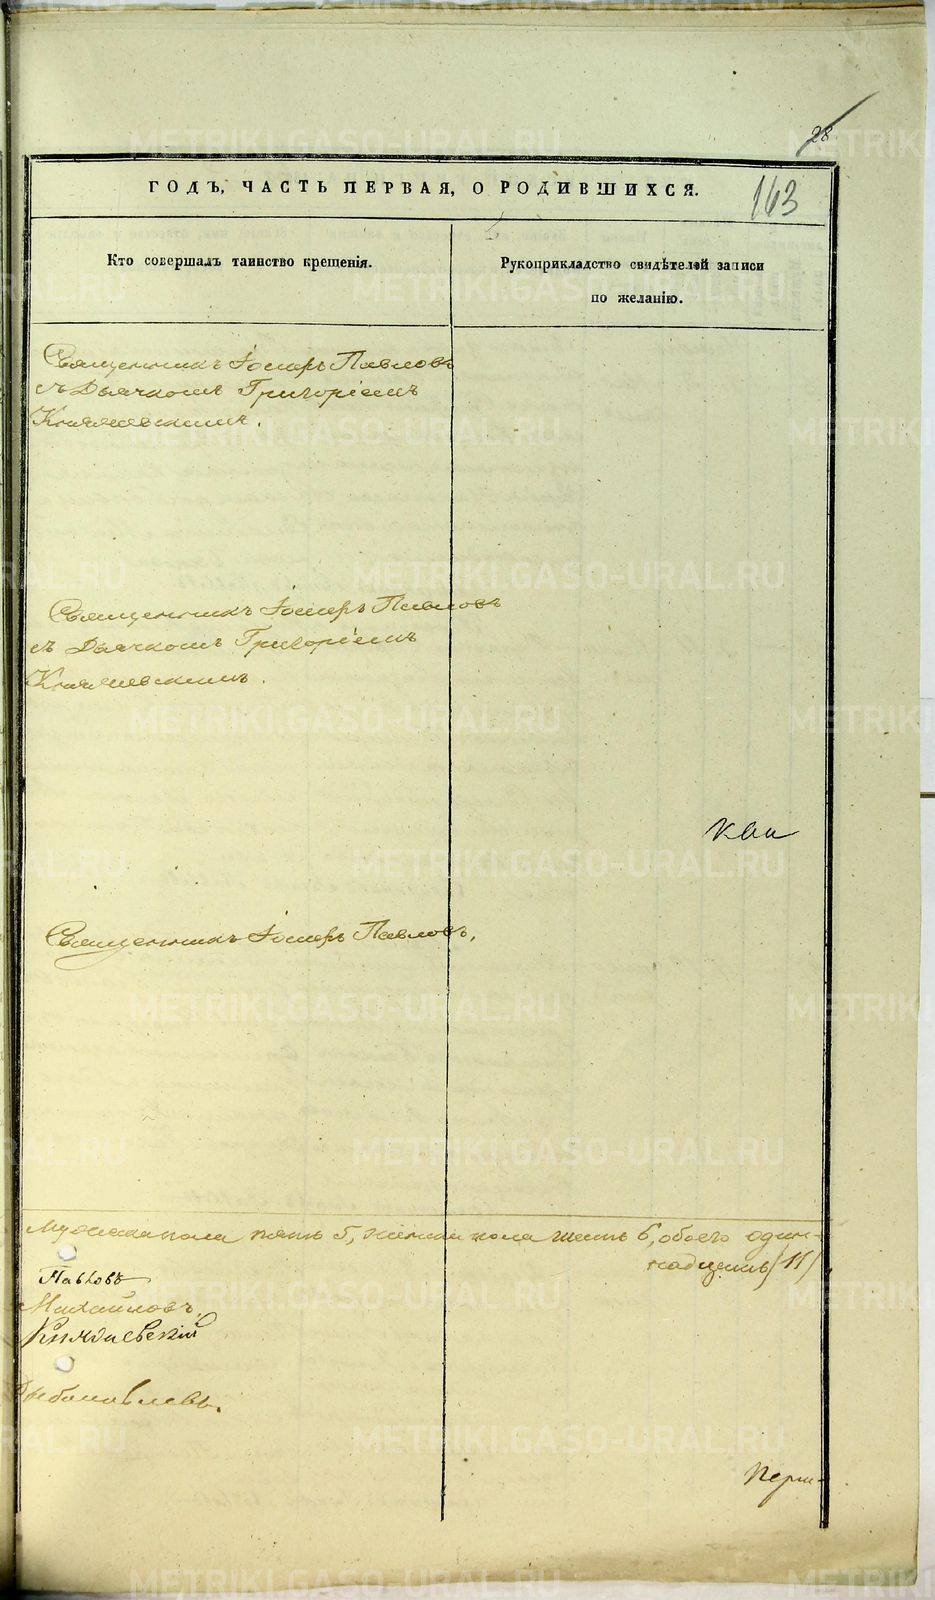 28
163
ГОДЪ, ЧАСТЬ ПЕРВАЯ, О РОДИВШИХСЯ.
Кто совершалъ таинство крещенія.
Рукоприкладство свидѣтелей записи
по желанію.
Священникъ Іосифъ Павловъ
съ Дьячкомъ Григоріемъ
Княжевскимъ.
Священникъ Іосифъ Павловъ
съ Дьячкомъ Григоріемъ
Княжевскимъ.
Священникъ Іосифъ Павловъ.
Мужеска пола пять 5, женска пола шесть 6, обоего один-
надцать (11).
Павловъ
Михайловъ.
METRIKI.GASO-URAL.RU